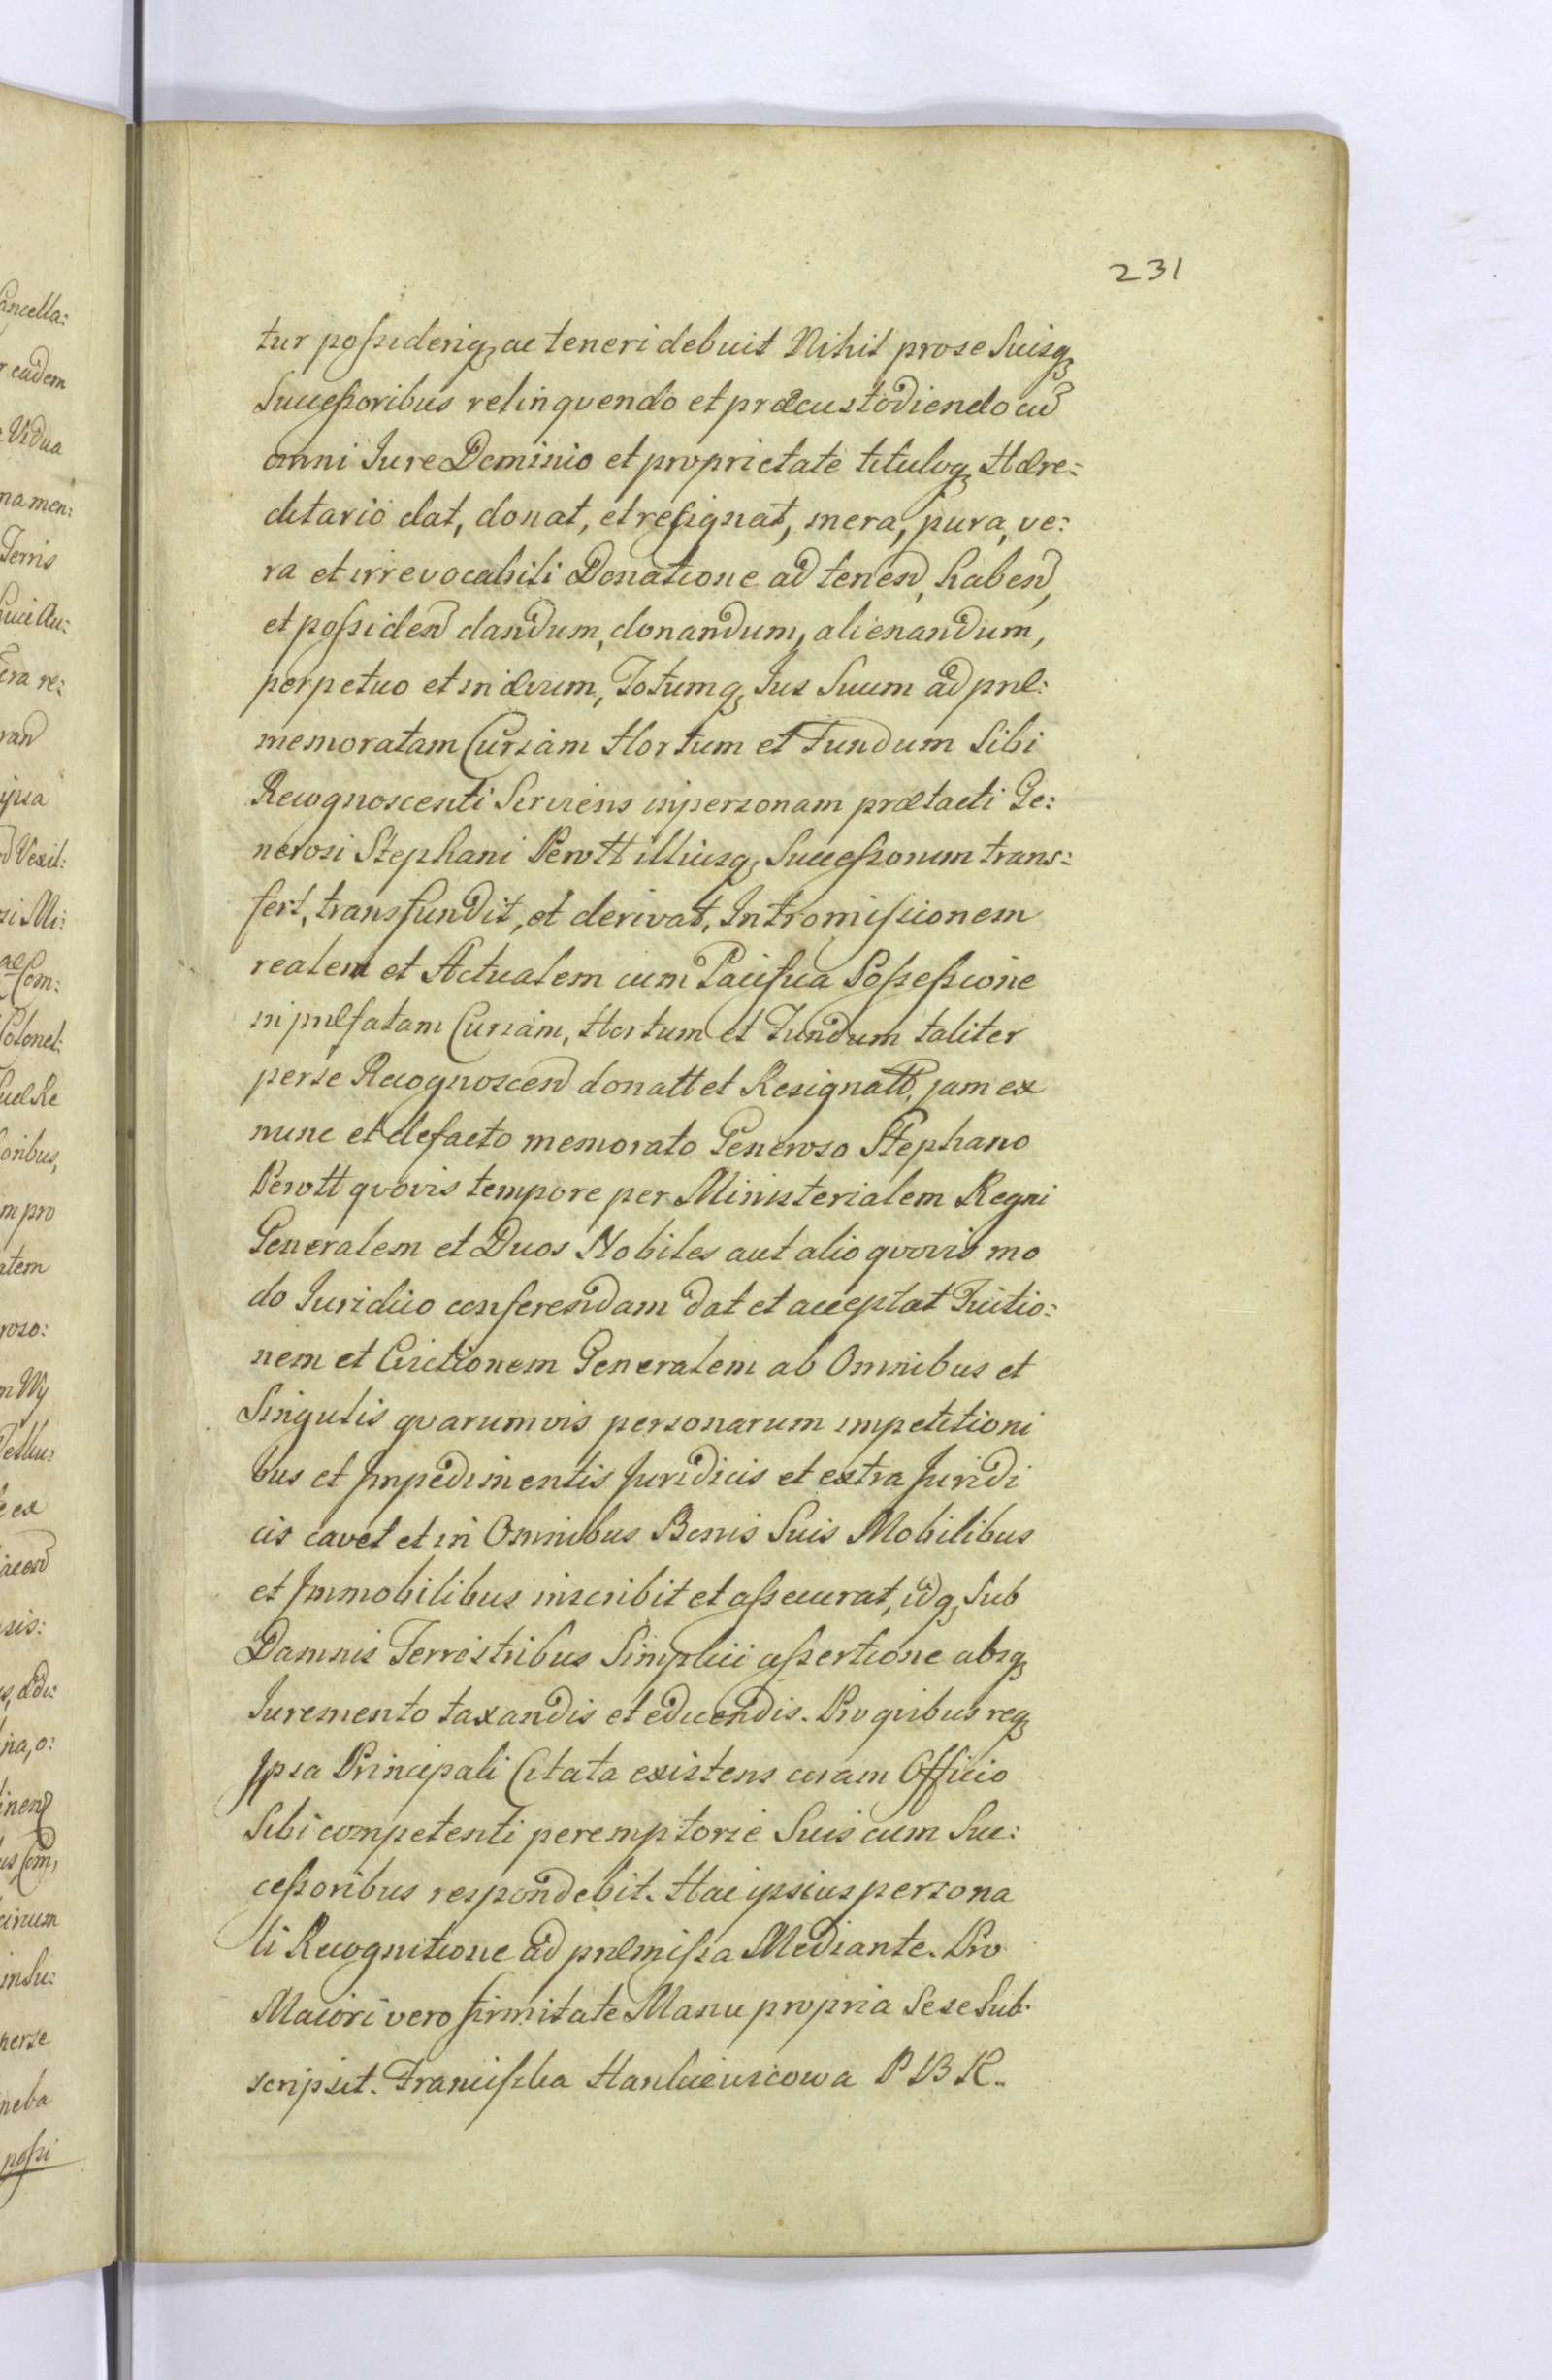 231
tur possideriq₃ ac teneri debuit Nihil pro se Suisq₃
Successoribus relinqvendo et præcustodiendo cū
omni Jure Dominio et proprietate tituloq₃ Hære:
ditario dat, donat, et resignat, mera, pura, ve:
ra et irrevocabili Donatione ad tenend, habend,
et possidend dandum, donandum, alienandum,
perpetuo et in ævum, Totumq₃ Jus Suum ad præ:
memoratam Curiam Hortum et Fundum Sibi
Recognoscenti Serviens in personam prætacti Ge:
nerosi Stephani Perott illiusq₃ Successorum trans:
fert, transfundit, et derivat, Intromissionem
realem et Actualem cum Pacifica Possessione
in præfatam Curiam, Hortum et Fundum taliter
per se Recognoscend donatt et Resignatt, jam ex
nunc et de facto memorato Generoso Stephano
Perott qvovis tempore per Ministerialem Regni
Generalem et Duos Nobiles aut alio qvovis mo
do Juridico conferendam dat et acceptat Tuitio:
nem et Evictionem Generalem ab Omnibus et
Singulis qvarumvis personarum impetitioni
bus et Impedimentis Juridicis et extra Juridi
cis cavet et in Omnibus Bonis Suis Mobilibus
et Immobilibus inscribit et assecurat, idq₃ Sub
Damnis Terrestribus Simplici assertione absq₃
Juremento taxandis et educendis. Pro qvibus req₃
Ipsa Principali Citata existens coram Officio
Sibi competenti peremptorie Suis cum Suc:
cessoribus respondebit. Hac ipsius persona
li Recognitione ad præmissa Mediante. Pro
Maiori vero firmitate Manu propria Sese Sub
scripsit. Franciszka P B K..
Cancella:
eadem
Vidua
na men:
Terris
ipsa
Vexil:
Colonel:
oribus,
m pro
per se
possi